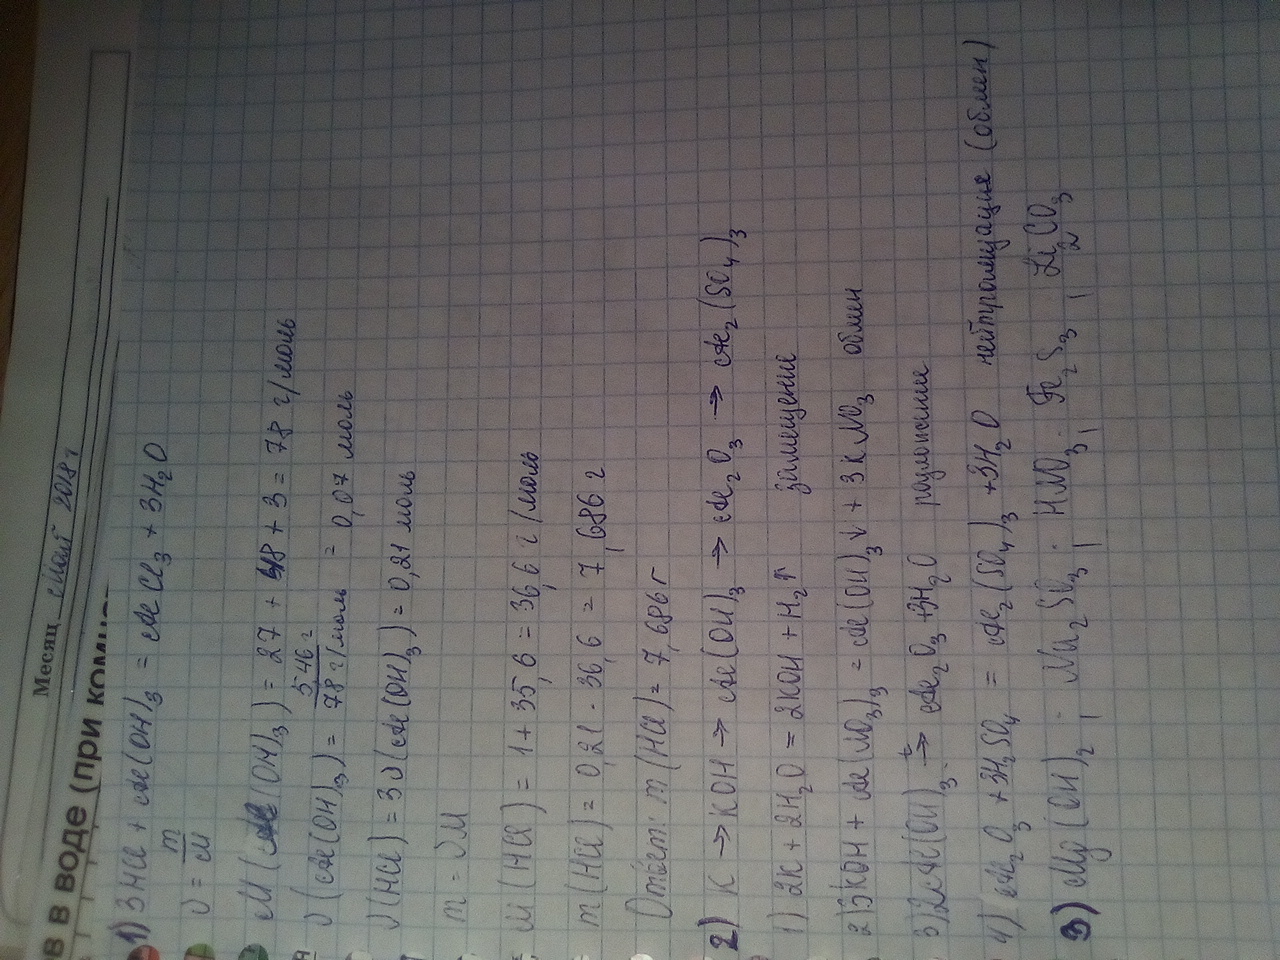 Месяц май 2018 г
в в воде (при комна
1) 3HCl + Al(OH)₃ = AlCl₃ + 3H₂O
ν = m/M
M(Al(OH)₃) = 27 + 48 + 3 = 78 г/моль
ν(Al(OH)₃) = 5,46 г / 78 г/моль = 0,07 моль
ν(HCl) = 3ν(Al(OH)₃) = 0,21 моль
m = νM
M(HCl) = 1 + 35,6 = 36,6 г/моль
m(HCl) = 0,21 · 36,6 = 7,686 г
Ответ: m(HCl) = 7,686 г
2) K → KOH → Al(OH)₃ → Al₂O₃ → Al₂(SO₄)₃
1) 2K + 2H₂O = 2KOH + H₂↑ замещение
2) 3KOH + Al(NO₃)₃ = Al(OH)₃↓ + 3KNO₃ обмен
3) 2Al(OH)₃ →t Al₂O₃ + 3H₂O разложение
4) Al₂O₃ + 3H₂SO₄ = Al₂(SO₄)₃ + 3H₂O нейтрализация (обмен)
3) Mg(OH)₂; Na₂SO₃; HNO₃; Fe₂S₃; Li₂CO₃